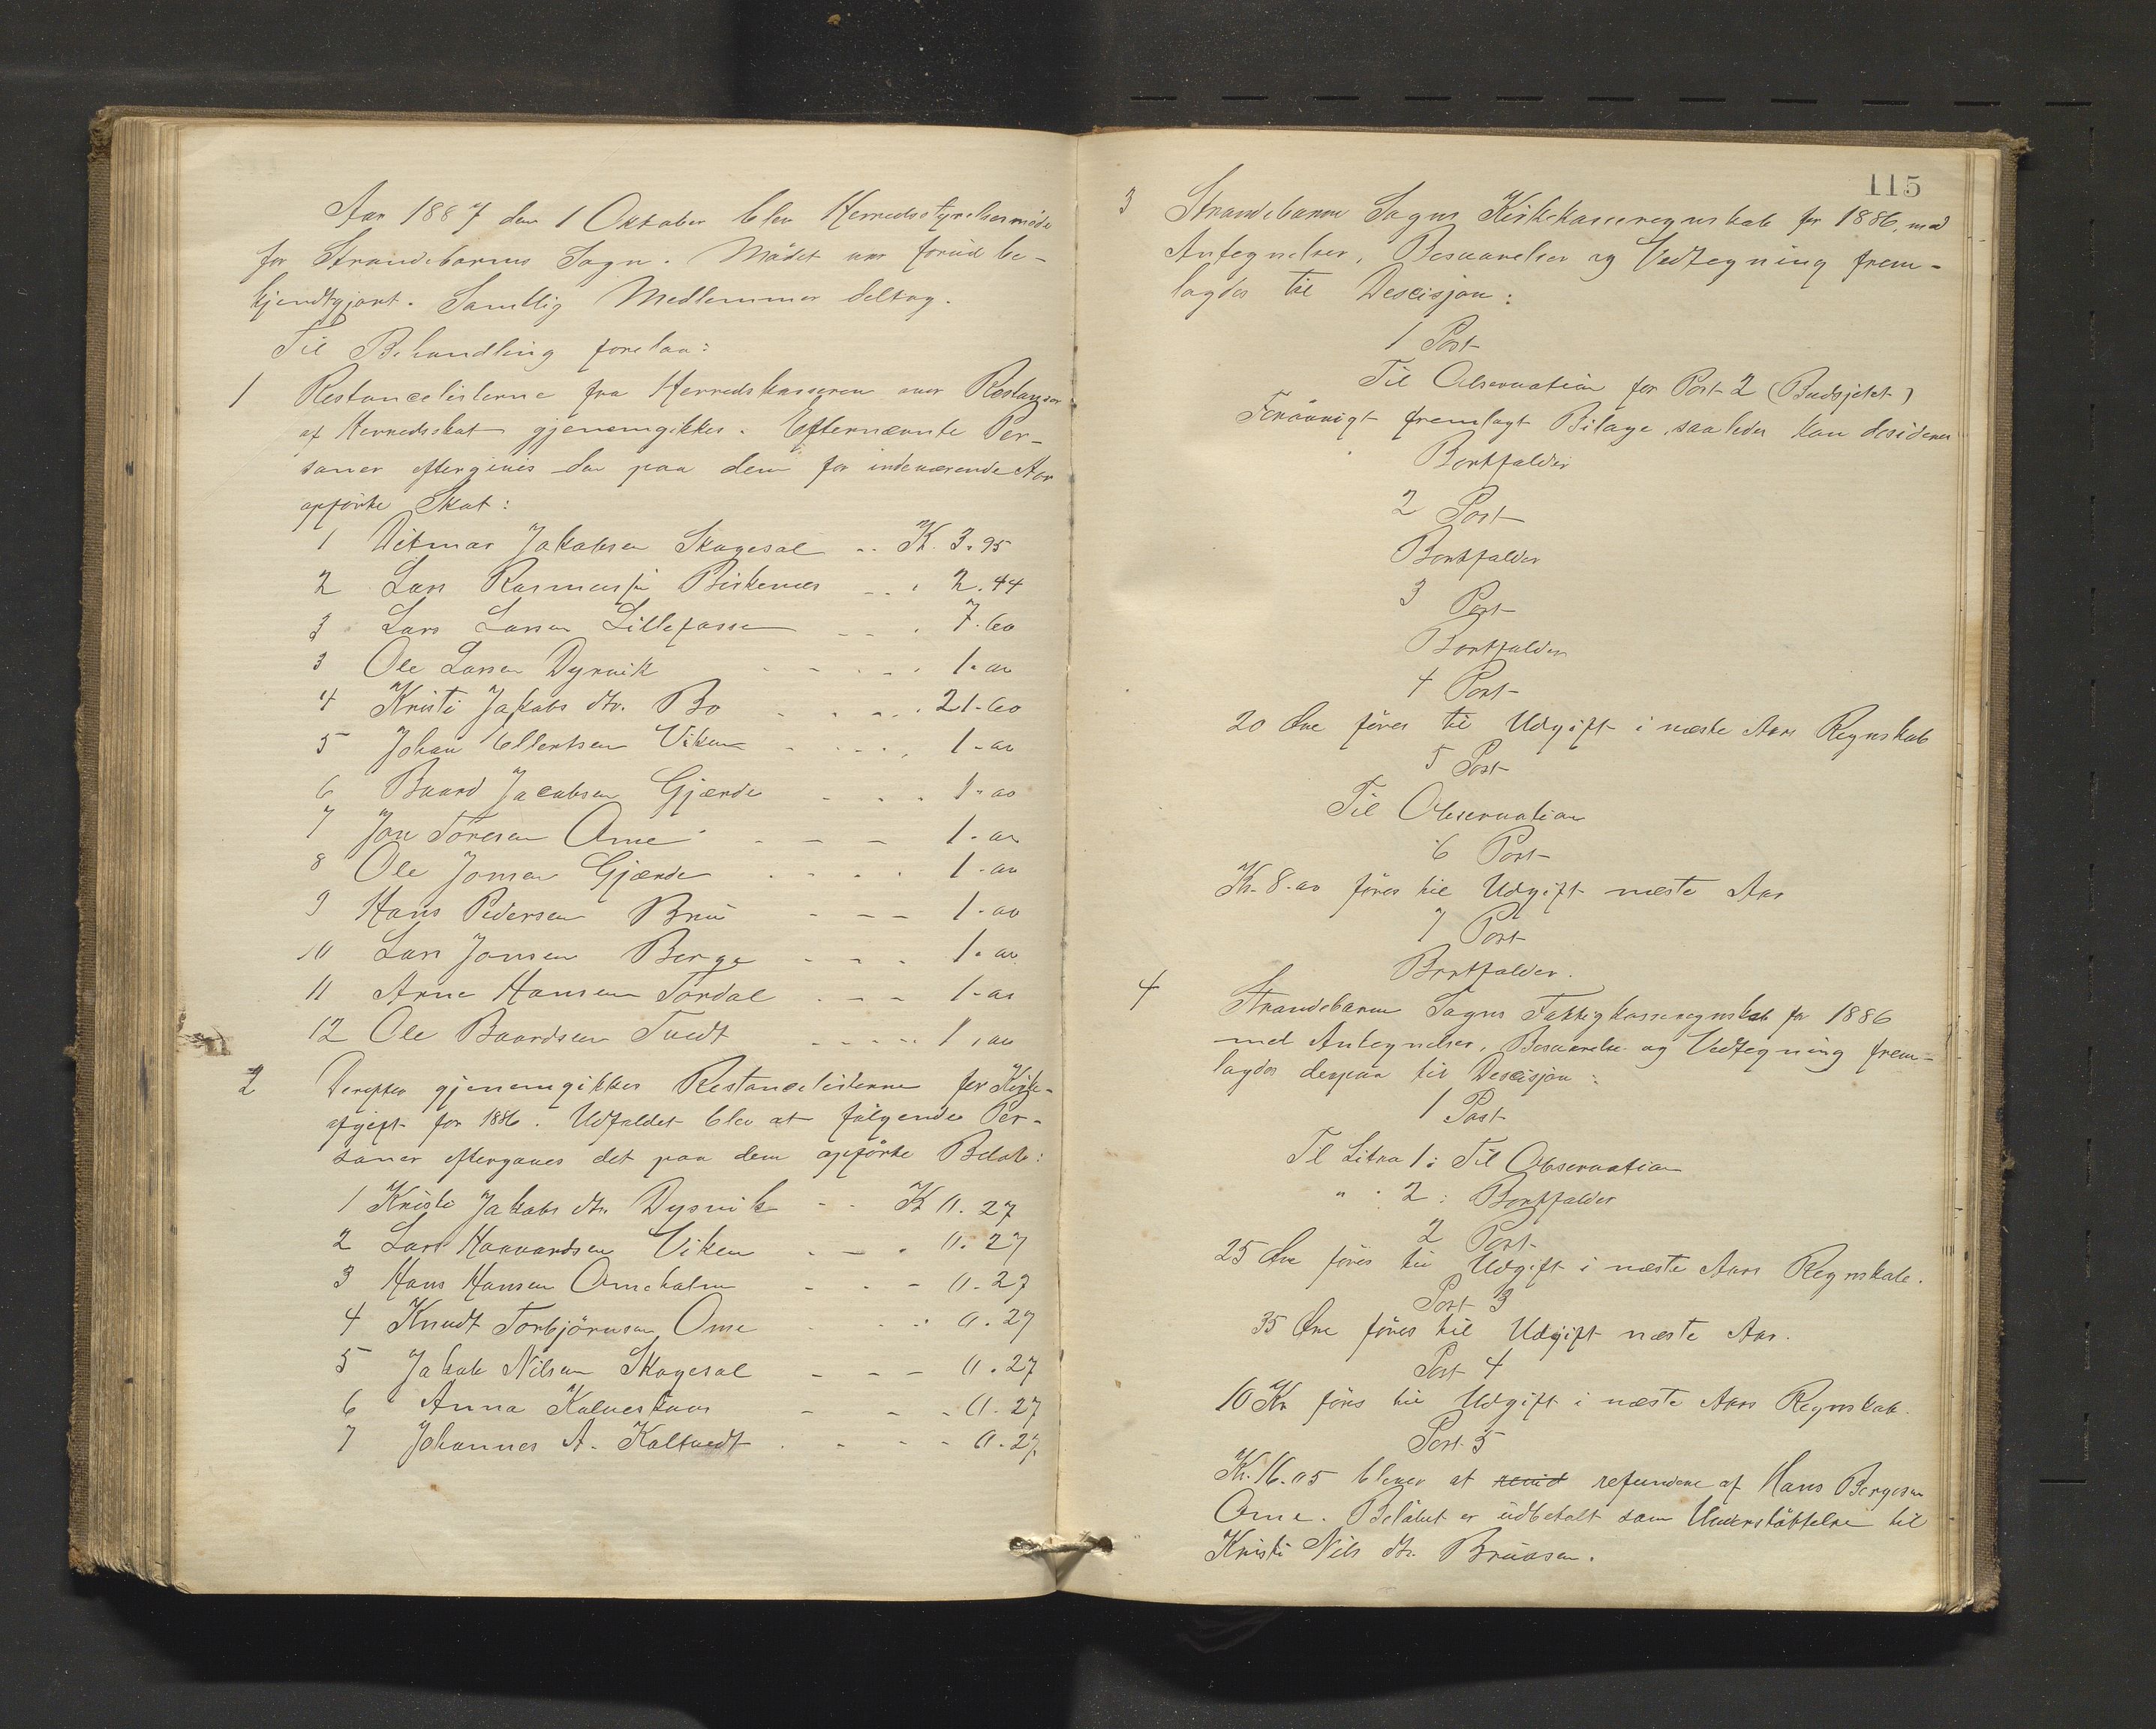 Aar 1887 den 1 Oktober blev Herredsstyrelsesmöde
for Strandebarms Sogn. Mödet var forud be-
kjendtgjort. Samtlig Medlemmer deltog.
Til Behandling forelaa:
1 Restancelisterne fra Herredskasseren over Restanser
af Herredsskat gjenemgikkes. Efternævnte Per-
soner eftergives den paa dem for indeværende Aar
opförte Skat:
1 Ditmar Jakobsen Skogesal .. K. 3.95
2 Lars Rasmussen Birkenes - . . 2.44
3 Lars Larsen Lillefosse - - . 7.60
3 Ole Larsen Dysvik . - - . . 1.00
4 Kristi Jakobs dtr. Bö . . - . 21.60
5 Johan Ellertsen Viken - . - . . 1-00
6 Baard Jacobsen Gjærde - . . 1-00
7 Jon Töresen Ome - - - 1.00
8 Ole Jonsen Gjærde . . . . 1-00
9 Hans Pedersen Bru - - - 1-00
10 Lars Jonsen Berge - - . 1.00
11 Arne Hansen Tordal . - - 1-00
12 Ole Baardsen Tvedt - - - - . 1,00
2 Derefter gjenemgikkes Restancelisterne for Kirke-
afgift for 1886. Udfaldet blev at fölgende Per-
soner eftergaves det paa dem opförte Belöb:
1 Kristi Jakobs dtr. Dysvik - - K 0.27
2 Lars Haavardsen Viken . - . 0.27
3 Hans Hansen Omeholm - . - 0.27
4 Knudt Torbjörnsen Ome . - . 0.27
5 Jakob Nilsen Skogesal - - - 0.27
6 Anna Kalvestaas - - - 0.27
7 Johannes A. Koltvedt . - - - 0.27
115
3 Strandebarm Sogns Kirkekasseregnskab for 1886, med
Antegnelser, Besvarelser og Vedtegning frem-
lagdes til Descisjon:
1 Post
Til Observation for Post 2 (Budsjetet)
Forövrigt fremlagt Bilage, saaledes kan desideres
Bortfalder
2 Post
Bortfalder
3 Post
Bortfalder
4 Post
20 Öre föres til Udgift i næste Aars Regnskab
5 Post
Til Observation
6 Post
Kr. 8.00 föres til Udgift næste Aar
7 Post
Bortfalder.
4 Strandebarm Sogns Fattigkasseregnskab for 1886
med Antegnelser, Besvarelse og Vedtegning frem-
lagdes derpaa til Descisjon:
1 Post
Til Litra 1: Til Observation
" " 2: Bortfalder
2 Post
25 Öre föres til Udgift i næste Aars Regnskab.
Post 3
35 Öre föres til Udgift næste Aar.
Post 4
10 Kr föres til Udgift i næste Aars Regnskab.
Post 5
Kr. 16.05 bliver at refundere af Hans Börgesen
Ome. Belöbet er udbetalt som Understöttelse til
Kristi Nils dtr. Bruosen.